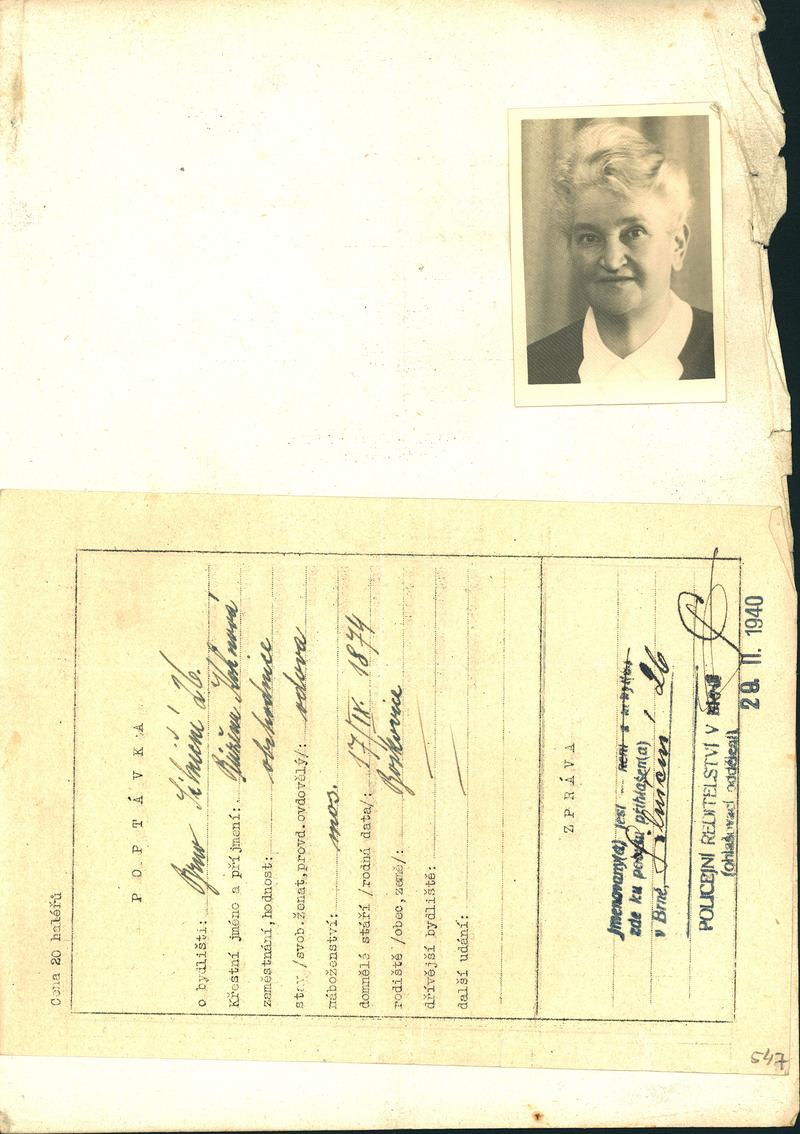 Cena 20 haléřů
P O P T Á V K A
o bydlišti: Brno
Křestní jméno a příjmení: Růžena
zaměstnání,hodnost: obchodnice
stav /svob.ženat,provd.ovdovělý/: vdova
náboženství: mos.
domnělé stáří /rodná data/: 17/IV. 1874
rodiště /obec,země/: Boskovice
dřívější bydliště:
další udání:
Z P R Á V A
Jmenovaný(a) jest
zde ku pobytu přihlášen(a)
v Brně, 26
POLICEJNÍ ŘEDITELSTVÍ V BRNĚ
(ohlašovací oddělení)
29. II. 1940
547